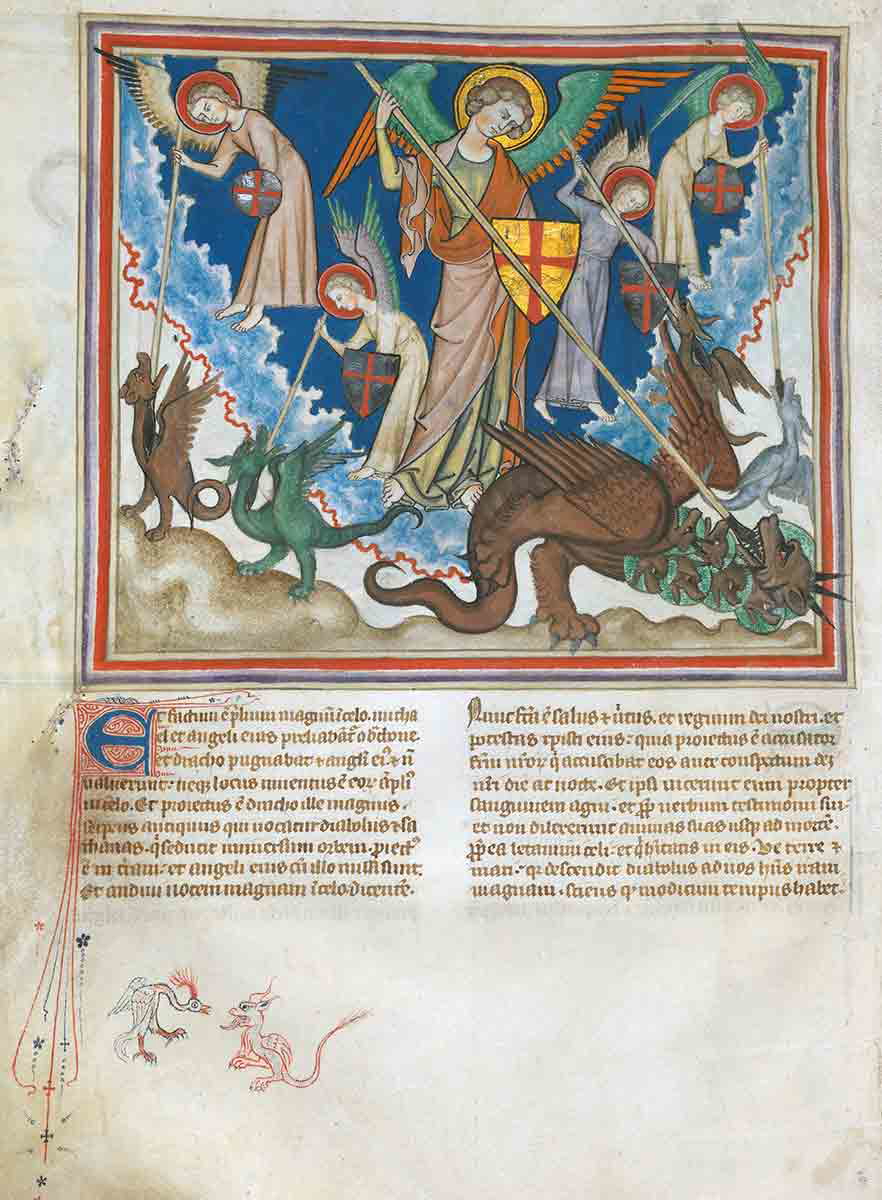 Et factum ē p̄lium magnū ī celo. micha
el et angeli eius preliabāt᷑ cū dracone.
et dracho pugnabat ⁊ angeli ei⁹. ⁊ ñ
ualuerunt. neqꝫ locus inuentus ē eoꝝ āpli⁹
in celo. Et proiectus ē dracho ille magnus.
serpens antiquus qui uocatur diabolus ⁊ sa
thanas. q̇ seducit uniuersum orbem. p̄iect⁹
ē in t̄ram. et angeli eius cū illo missi sunt.
Et audiui uocem magnam ī celo dicentē.
Nunc fc̄a ē salus ⁊ uirtus. et regnum dei nostri. et
potestas cristi eius. quia proiectus ē accusator
fr̄um nr̄or. q̇ accusabat eos ante conspectum dei
nr̄i die ac nocte. Et ipsi uicerunt eum propter
sanguinem agni. et ꝓp̄ uerbum testimonii sui.
et non dilexerunt animas suas usqꝫ ad mortē.
ꝓp̄ ea letamini celi. et q̇ hitatis in eis. Ve terre ⁊
mari. q̇ descendit diabolus ad uos hñs iram
magnam. sciens q̇ modicum tempus habet.